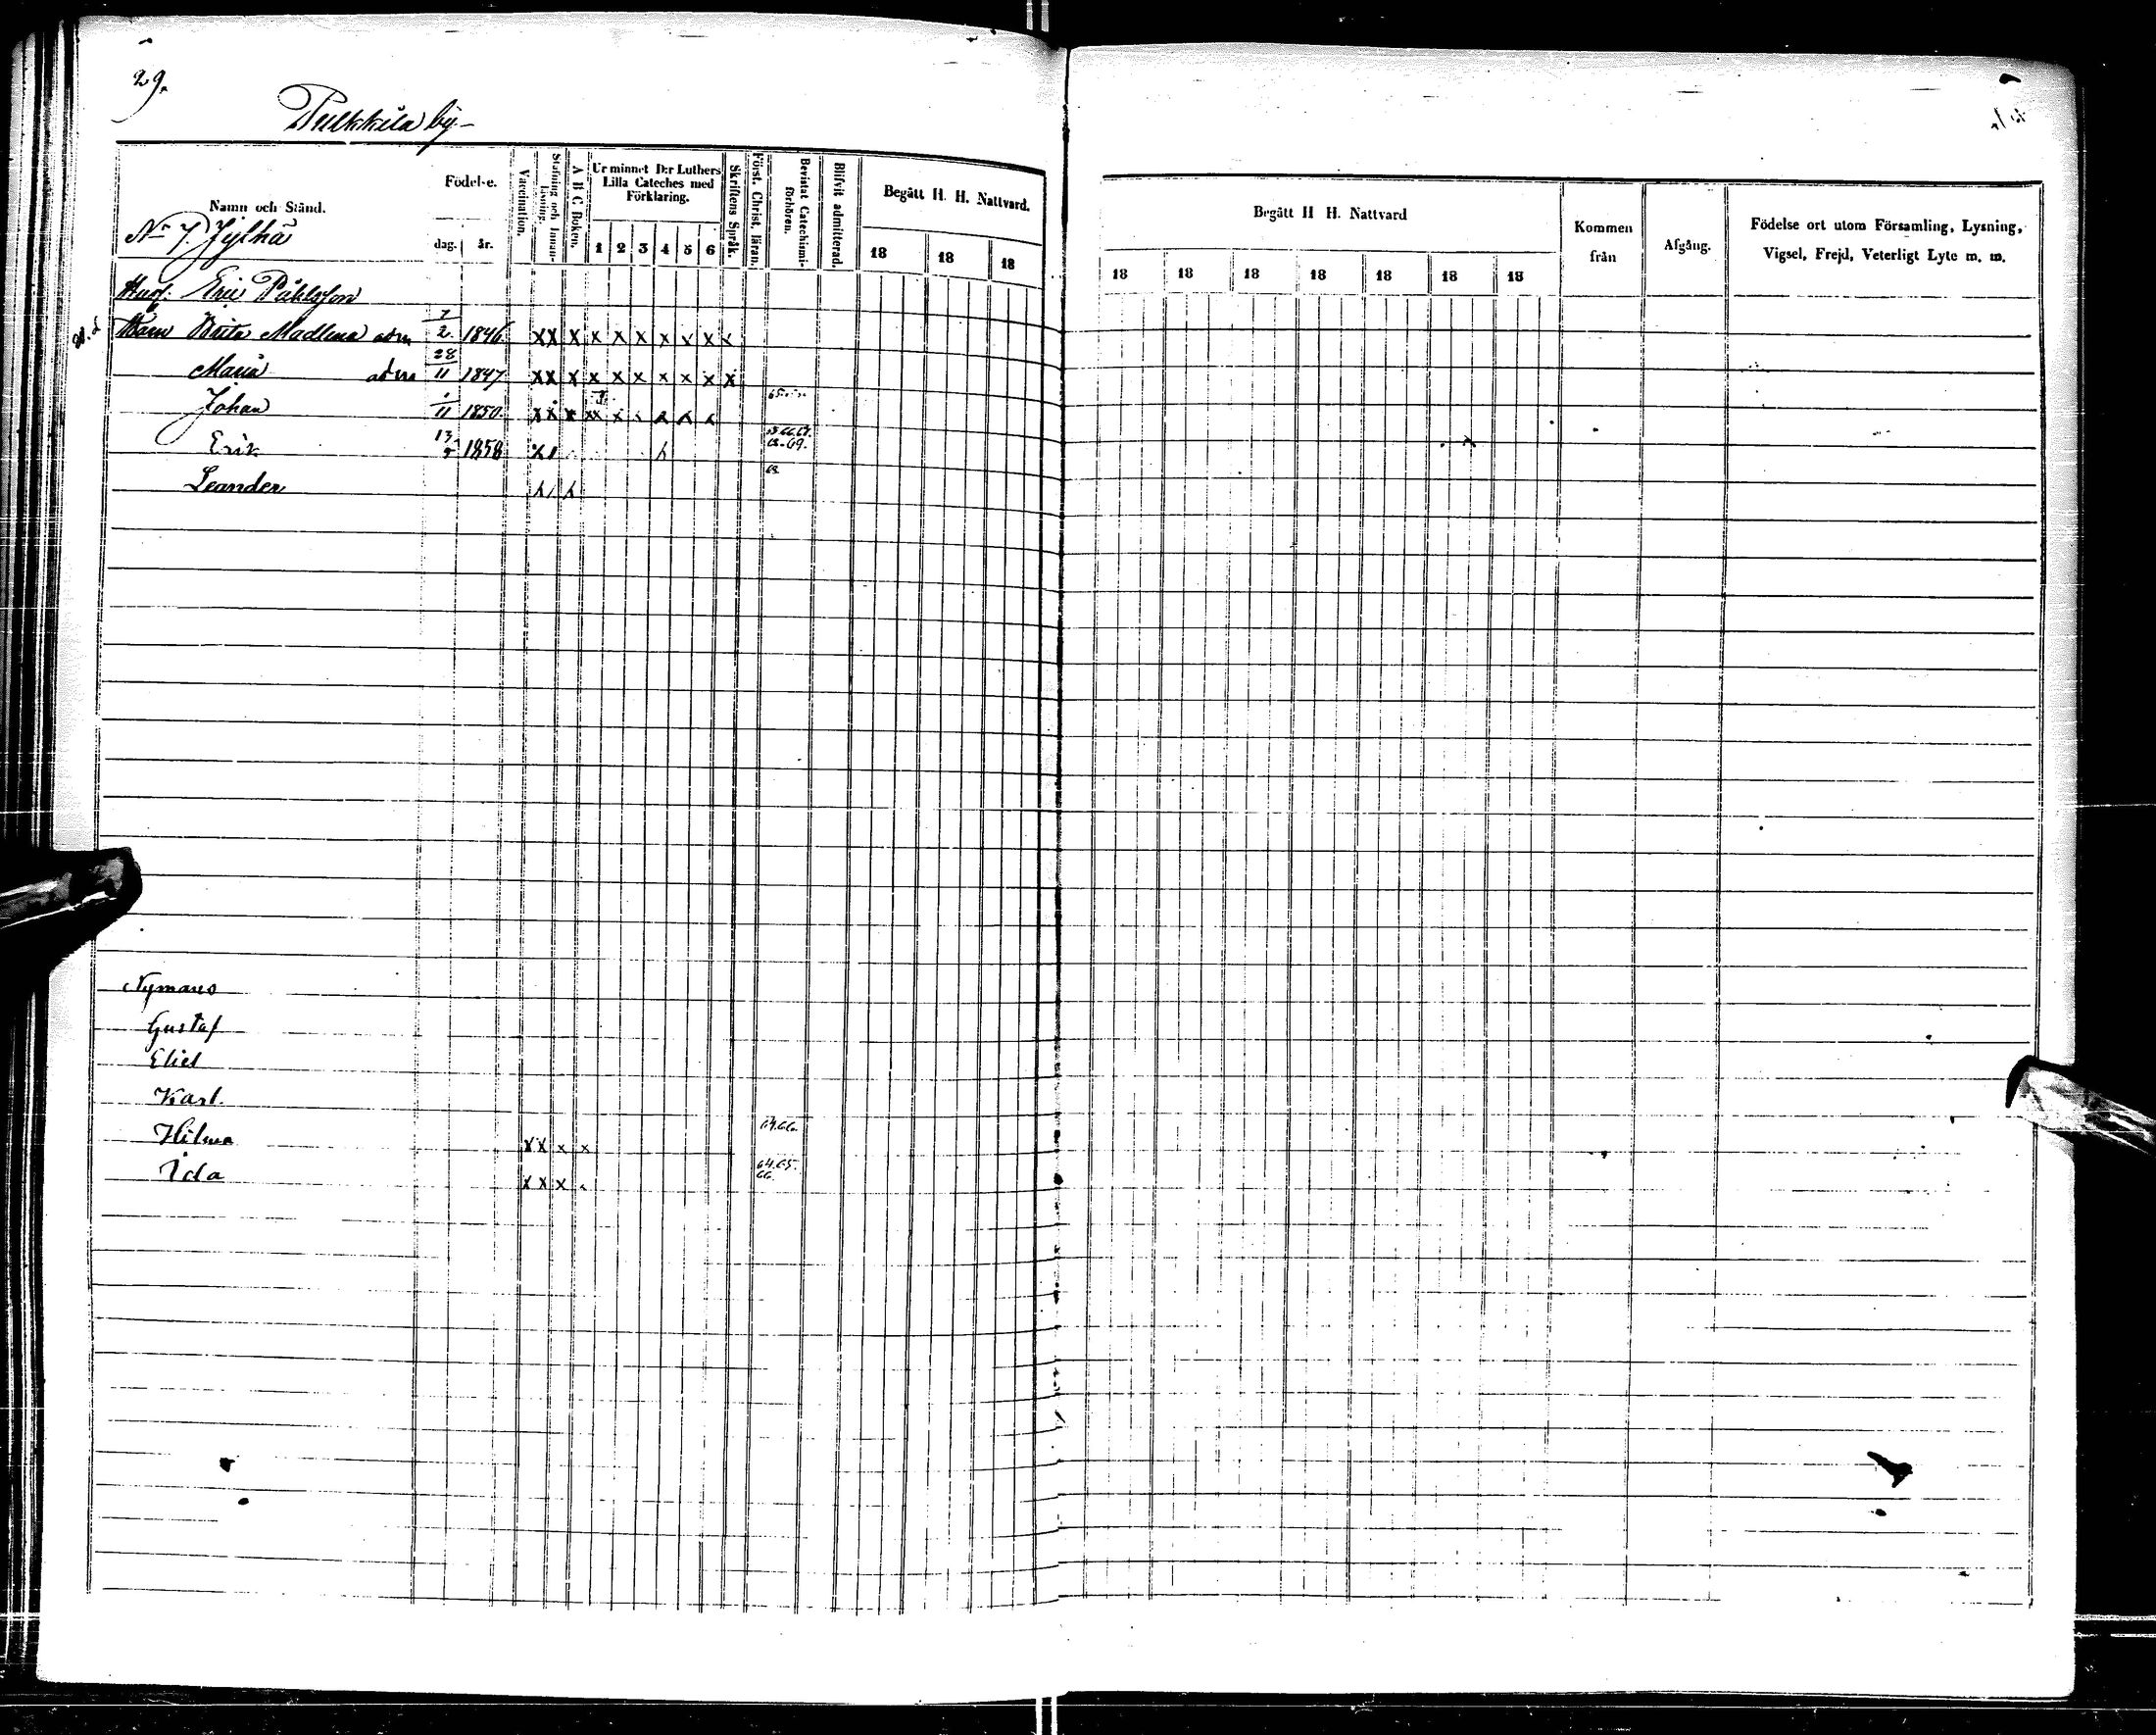 29.
Pulkkila by
Namn och Stånd.
Födelse.
dag. år.
Vaccination.
Stafning och Innan-
läsning.
A B C Boken.
Ur minnet D:r Luthers
Lilla Cateches med
Förklaring.
1 2 3 4 5 6
Skriftens Språk.
Först. Christ. läran.
Bevistat Catechismi-
förhören.
Blifvit admitterad.
Begått H. H. Nattvard.
18 18 18
Begått H H. Nattvard
18 18 18 18 18 18 18
Kommen
från
Afgång.
Födelse ort utom Församling, Lysning,
Vigsel, Frejd, Veterligt Lyte m. m.
No 7. Jylhä
Eric Påhlsson
Barn Brita Madlena adm 7/2 1846 x x x x x x x x x x
Maria adm 28/11 1847 x x x x x x x x x x
Johan 11 1850.
Erik 13 1858 69.
Leander
Nymans
Gustaf
Eliel
Karl.
Hilma x x x x
Ida x x x 64.65.
66.